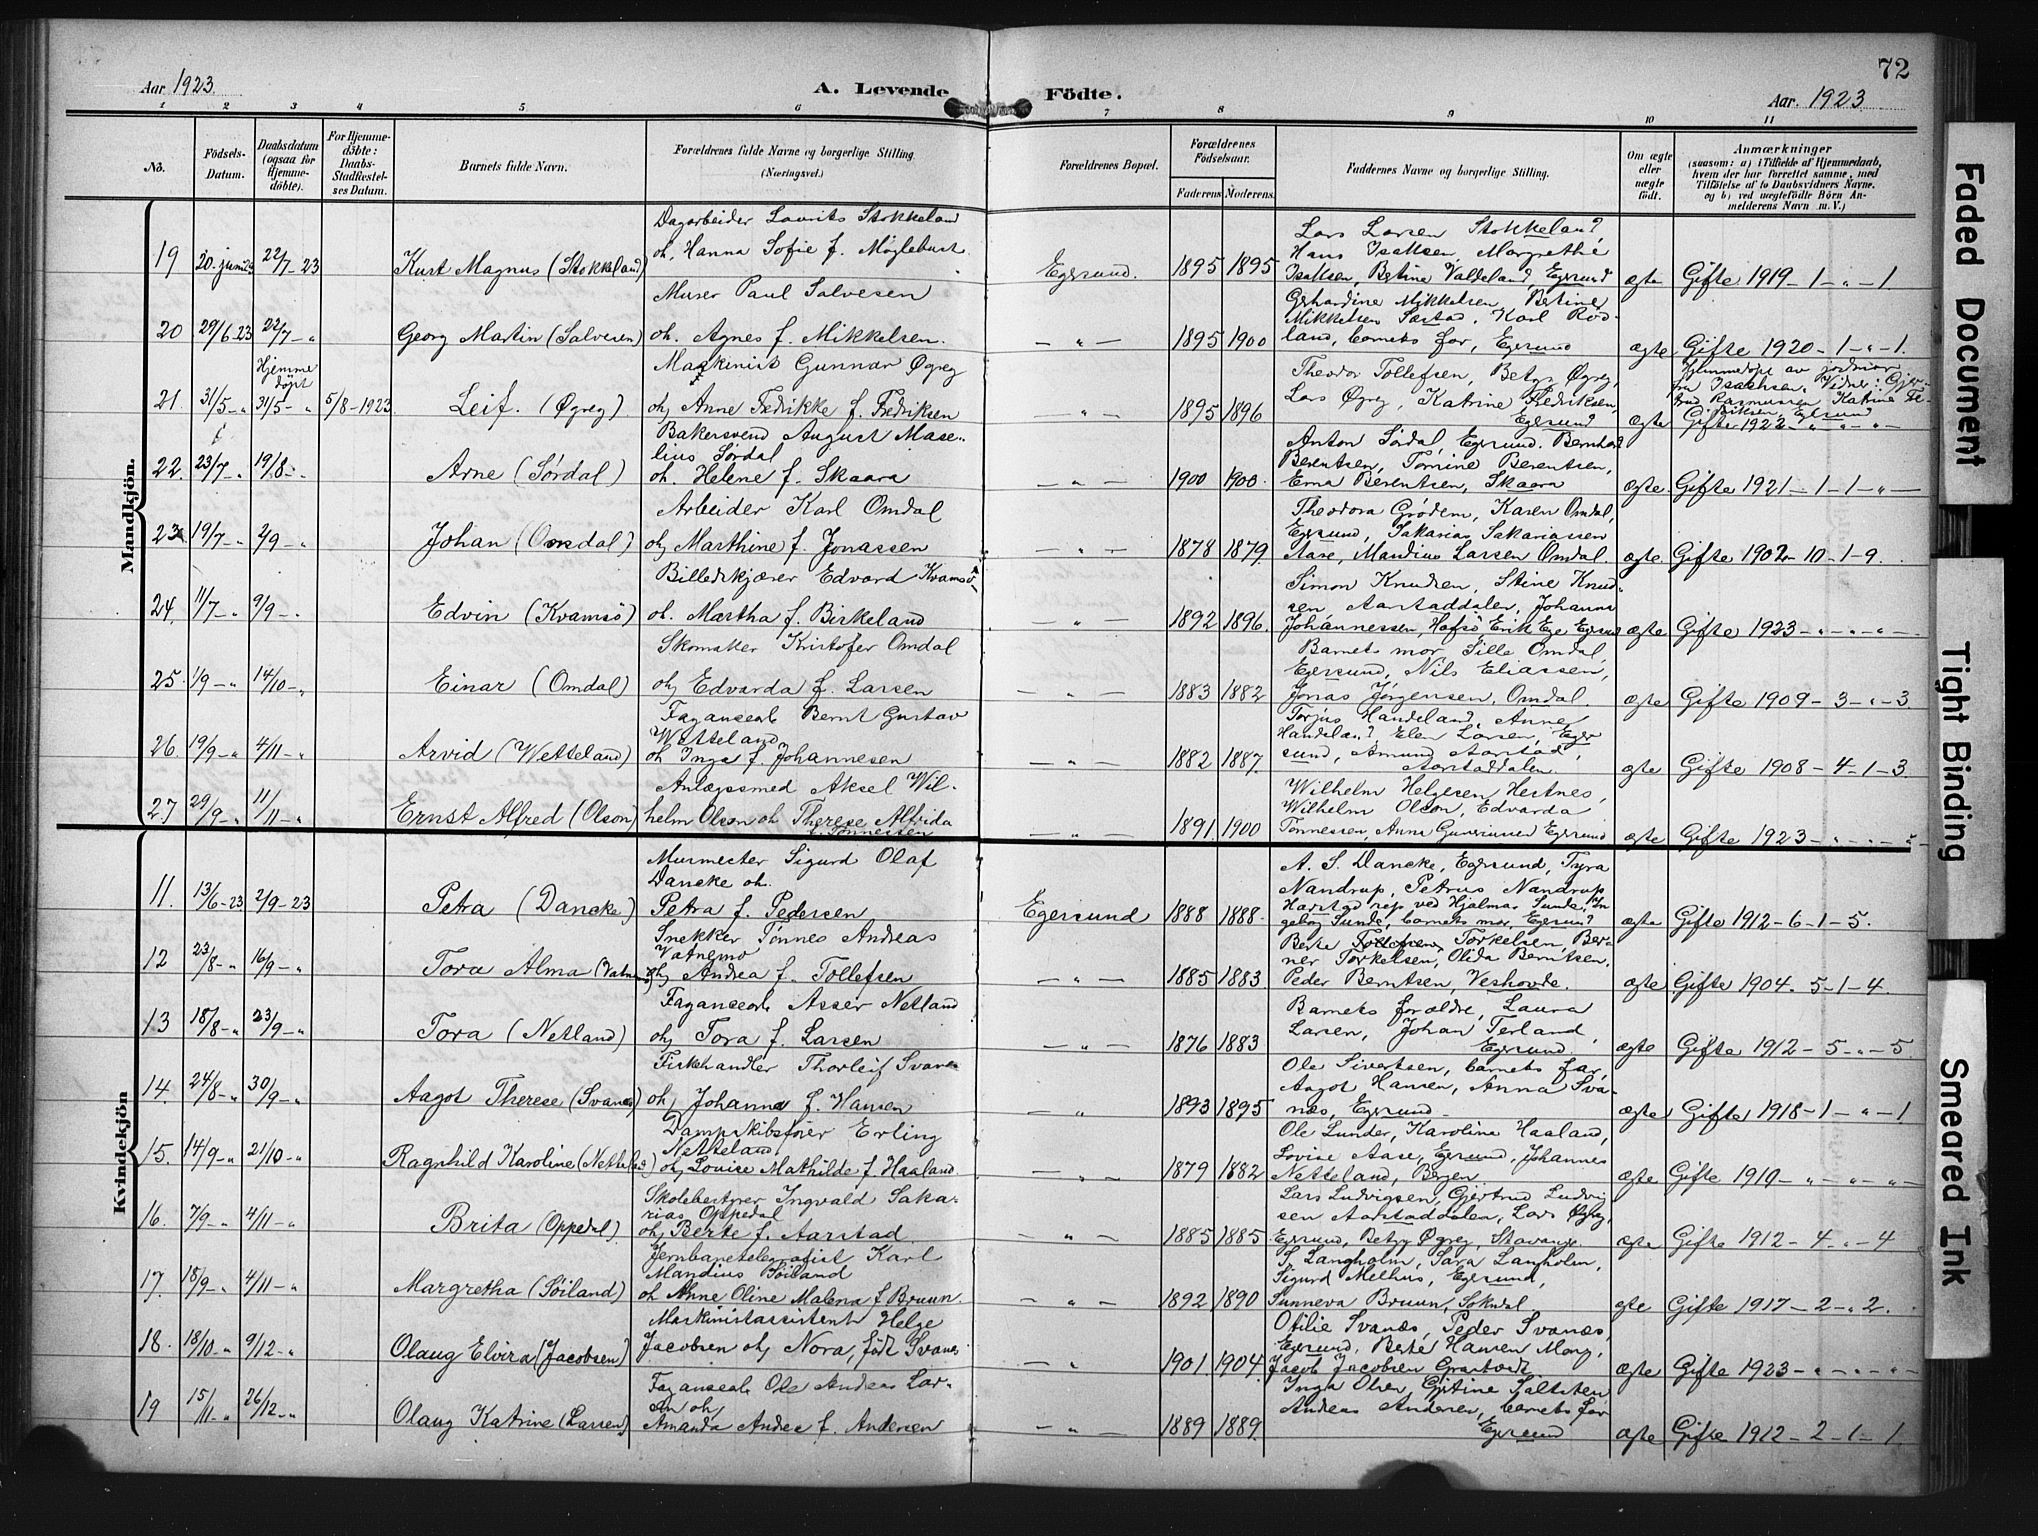 72
Aar 1923.
A. Levende Födte.
Aar. 1923
1 2 3 4 5 6 7 8 9 10 11
No.
Födsels-Datum.
Daabsdatum (ogsaa for Hjemmedöbte).
For Hjemmedöbte: Daabs-Stadfæstelses Datum.
Barnets fulde Navn.
Forældrenes fulde Navne og borgerlige Stilling. (Næringsvei.)
Forældrenes Bopæl.
Forældrenes Födselsaar.
Faderens Moderens
Faddernes Navne og borgerlige Stilling.
Om ægte eller uægte födt.
Anmærkninger
(saasom: a) i Tilfælde af Hjemmedaab, hvem der har forrettet samme, med Tilföielse af to Daabsvidners Navne, og b) ved uægtefödte Börn Anmelderens Navn m. V.)
Mandkjön.
19 20. juni 22/7-23 Kurt Magnus (Stokkeland)
Dagarbeider Lavrits Stokkeland
oh. Hanna Sofie f. Møglebust
Egersund. 1895 1895
Lars Larsen Stokkeland
Hans Isaksen, Margrethe
Isaksen, Betine Valdeland, Egersund
ægte Gifte 1919-1-"-1
20 29/6 23 22/7-" Georg Martin (Salvesen)
Murer Paul Salvesen
oh. Agnes f. Mikkelsen.
-"- 1895 1900
Gerhardine Mikkelsen, Betine
Mikkelsen Sæstad, Karl Rød-
land, barnets far, Egersund
ægte Gifte 1920-1-"-1.
21. 31/5-" Hjemme døpt 31/5-" 5/8-1923. Leif. (Øgrey)
Maskinist Gunnar Øgrey
oh. Anne Fredrikke f. Fredriksen
-"- 1895 1896
Theodor Tollefsen, Betzy Øgrey,
Lars Øgrey, Katrine Fredriksen,
Egersund
ægte
Hjemmedøpt av jordmor
fru Isachsen. Vidner: Gjer-
trud Rasmussen Katrine Fre-
driksen, Egersund
Gifte 1922-"-"-"-
22. 23/7-" 19/8-" Arne (Sørdal)
Bakersvend August Mase-
lius Sørdal
oh. Helene f. Skaara
-"- 1900 1900.
Anton Sørdal, Egersund. Bernhard
Berentsen, Tomine Berentsen,
Erna Berentsen, Skaara
ægte Gifte 1921-1-1-"-
23 19/7-" 2/9-" Johan (Omdal)
Arbeider Karl Omdal
oh. Marthine f. Jonassen
-"- 1878 1879.
Theodora Grødem, Karen Omdal,
Egersund, Sakarias Sakariassen
Aase, Mandius Larsen Omdal.
ægte. Gifte 1902-10-1-9.
24. 11/7-" 9/9-" Edvin (Kvamsö)
Billedskjærer Edvard Kvamsö
oh. Martha f. Birkeland
-"- 1892 1896.
Simon Knudsen, Stine Knud-
sen, Aarstaddalen, Johanne
Johannessen, Hafsö, Erik Ege Egersund
ægte Gifte 1923-"-"-"-
25. 1/9-" 14/10-" Einar (Omdal)
Skomaker Kristofer Omdal
oh. Edvarda f. Larsen
-"- 1883 1882
Barnets mor, Sille Omdal,
Egersund, Nils Eliassen,
Jonas Jørgensen, Omdal.
ægte Gifte 1909-3-"-3
26. 19/9-" 4/11-" Arvid (Wetteland)
Fajansearb Bernt Gustav
Wetteland
oh Inga f. Johannesen
-"- 1882 1887.
Torjus Handeland, Anne
Handeland, Elen Larsen, Eger
sund, Amund Aarstad,
Aarstaddalen.
ægte Gifte 1908-4-1-3.
27. 29/9-" 11/11-" Ernst Alfred (Olson)
Anlægssmed Aksel Wil-
helm Olson oh Therese Alfrida
f. Tønnessen
-"- 1891. 1900
Wilhelm Helgesen Hestnes,
Wilhelm Olson, Edvarda
Tønnessen, Anna Gunvaldsen Egersund
ægte Gifte 1923-"-"-"-
Kvindekjön
11. 13/6-23 2/9-23 Petra (Dancke)
Murmester Sigurd Olaf
Dancke oh.
Petra f. Pedersen
Egersund 1888 1888.
A. S. Dancke, Egersund, Tyra
Nandrup, Petrus Nandrup
Harstad rep ved Hjalmar Sunde, In
geborg Sunde, barnets mor, Egersund
ægte Gifte 1912-6-1-5.
12 23/8-" 16/9-" Tora Alma (Vatnemo)
Snekker Tønnes Andreas
Vatnemo
oh. Andrea f. Tollefsen
-"- 1885 1883
Berte Torkelsen, Ber-
ner Torkelsen, Olida Berntsen,
Peder Berntsen, Veshovde.
ægte Gifte 1904-5-1-4.
13 18/8-" 23/9-" Tora (Netland)
Fajansearb Asser Netland
oh Tora f. Larsen
-"- 1876 1883
Barnets forældre, Laura
Larsen, Johan Terland,
Egersund.
ægte Gifte 1912-5-"-5.
14. 24/8-" 30/9-" Aagot Therese (Svanæs)
Fiskehandler Thorleif Svanæs
oh Johanna f. Hansen
-"- 1893 1895
Ole Sivertsen, barnets far,
Aagot Hansen, Anna Sva-
næs, Egersund-
ægte Gifte 1918-1-"-1
15. 14/9-" 21/10-" Ragnhild Karoline (Netteland)
Dampskibsfører Erling
Netteland
oh Lovise Mathilde f. Haaland
-"- 1879 1882
Ole Lunder, Karoline Haaland,
Lovise Aase, Egersund, Johannes
Netteland, Bergen
ægte Gifte 1919-"-"-"-
16. 7/9-" 4/11-" Brita (Oppedal)
Skolebestyrer Ingvald Saka-
rias Oppedal
oh Berte f. Aarstad.
-"- 1885 1885
Lars Ludvigsen, Gjertrud Ludvig
sen Aarstaddalen, Lars Øgrey,
Egersund, Betzy Øgrey, Stavanger
ægte Gifte 1912-4-"-4
17. 18/9-" 4/11-" Margretha (Søiland)
Jernbanetelegrafist Karl
Mandius Søiland
oh Anne Oline Malena f Bruun.
-"- 1892 1890
S. Langholm, Sara Langholm,
Sigurd Melhus, Egersund,
Sunneva Bruun, Sokndal.
ægte Gifte 1917-2-"-2.
18. 18/10-" 9/12-" Olaug Elvira (Jacobsen)
Maskinistassistent Helge
Jacobsen oh. Nora, født Svanes
-"- 1901. 1904.
Otilie Svanæs, Peder Svanæs,
Egersund, Berte Hansen Mong,
Jacob Jacobsen Grastveit
ægte Gifte 1923-"-"-"-
19 15/11-" 26/12-" Olaug Katrine (Larsen)
Fajansearb Ole Andreas Lar-
sen oh.
Amanda Andrea f. Andersen
-"- 1889 1889.
Inga Olsen, Gjetine Saltsten
Andreas Andersen, barnets far
Egersund
ægte Gifte 1912-2-1-1.
Faded Document
Tight Binding
Smeared Ink